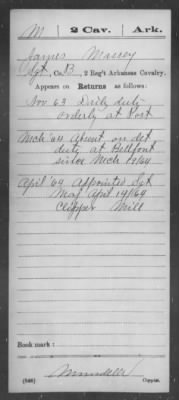 M | 2 Cav. | Ark.
James Massey
Sgt, Co. B, 2 Reg't Arkansas Cavalry.
Appears on Returns as follows:
Nov 63 Daily duty
orderly at Post
Mch '64 Absent on det
duty at Bellfont
since Mch 19/64
April '64 Appointed Sgt
Maj April 14/64
Clipper Mill
Book mark:
(546)
Copyist.